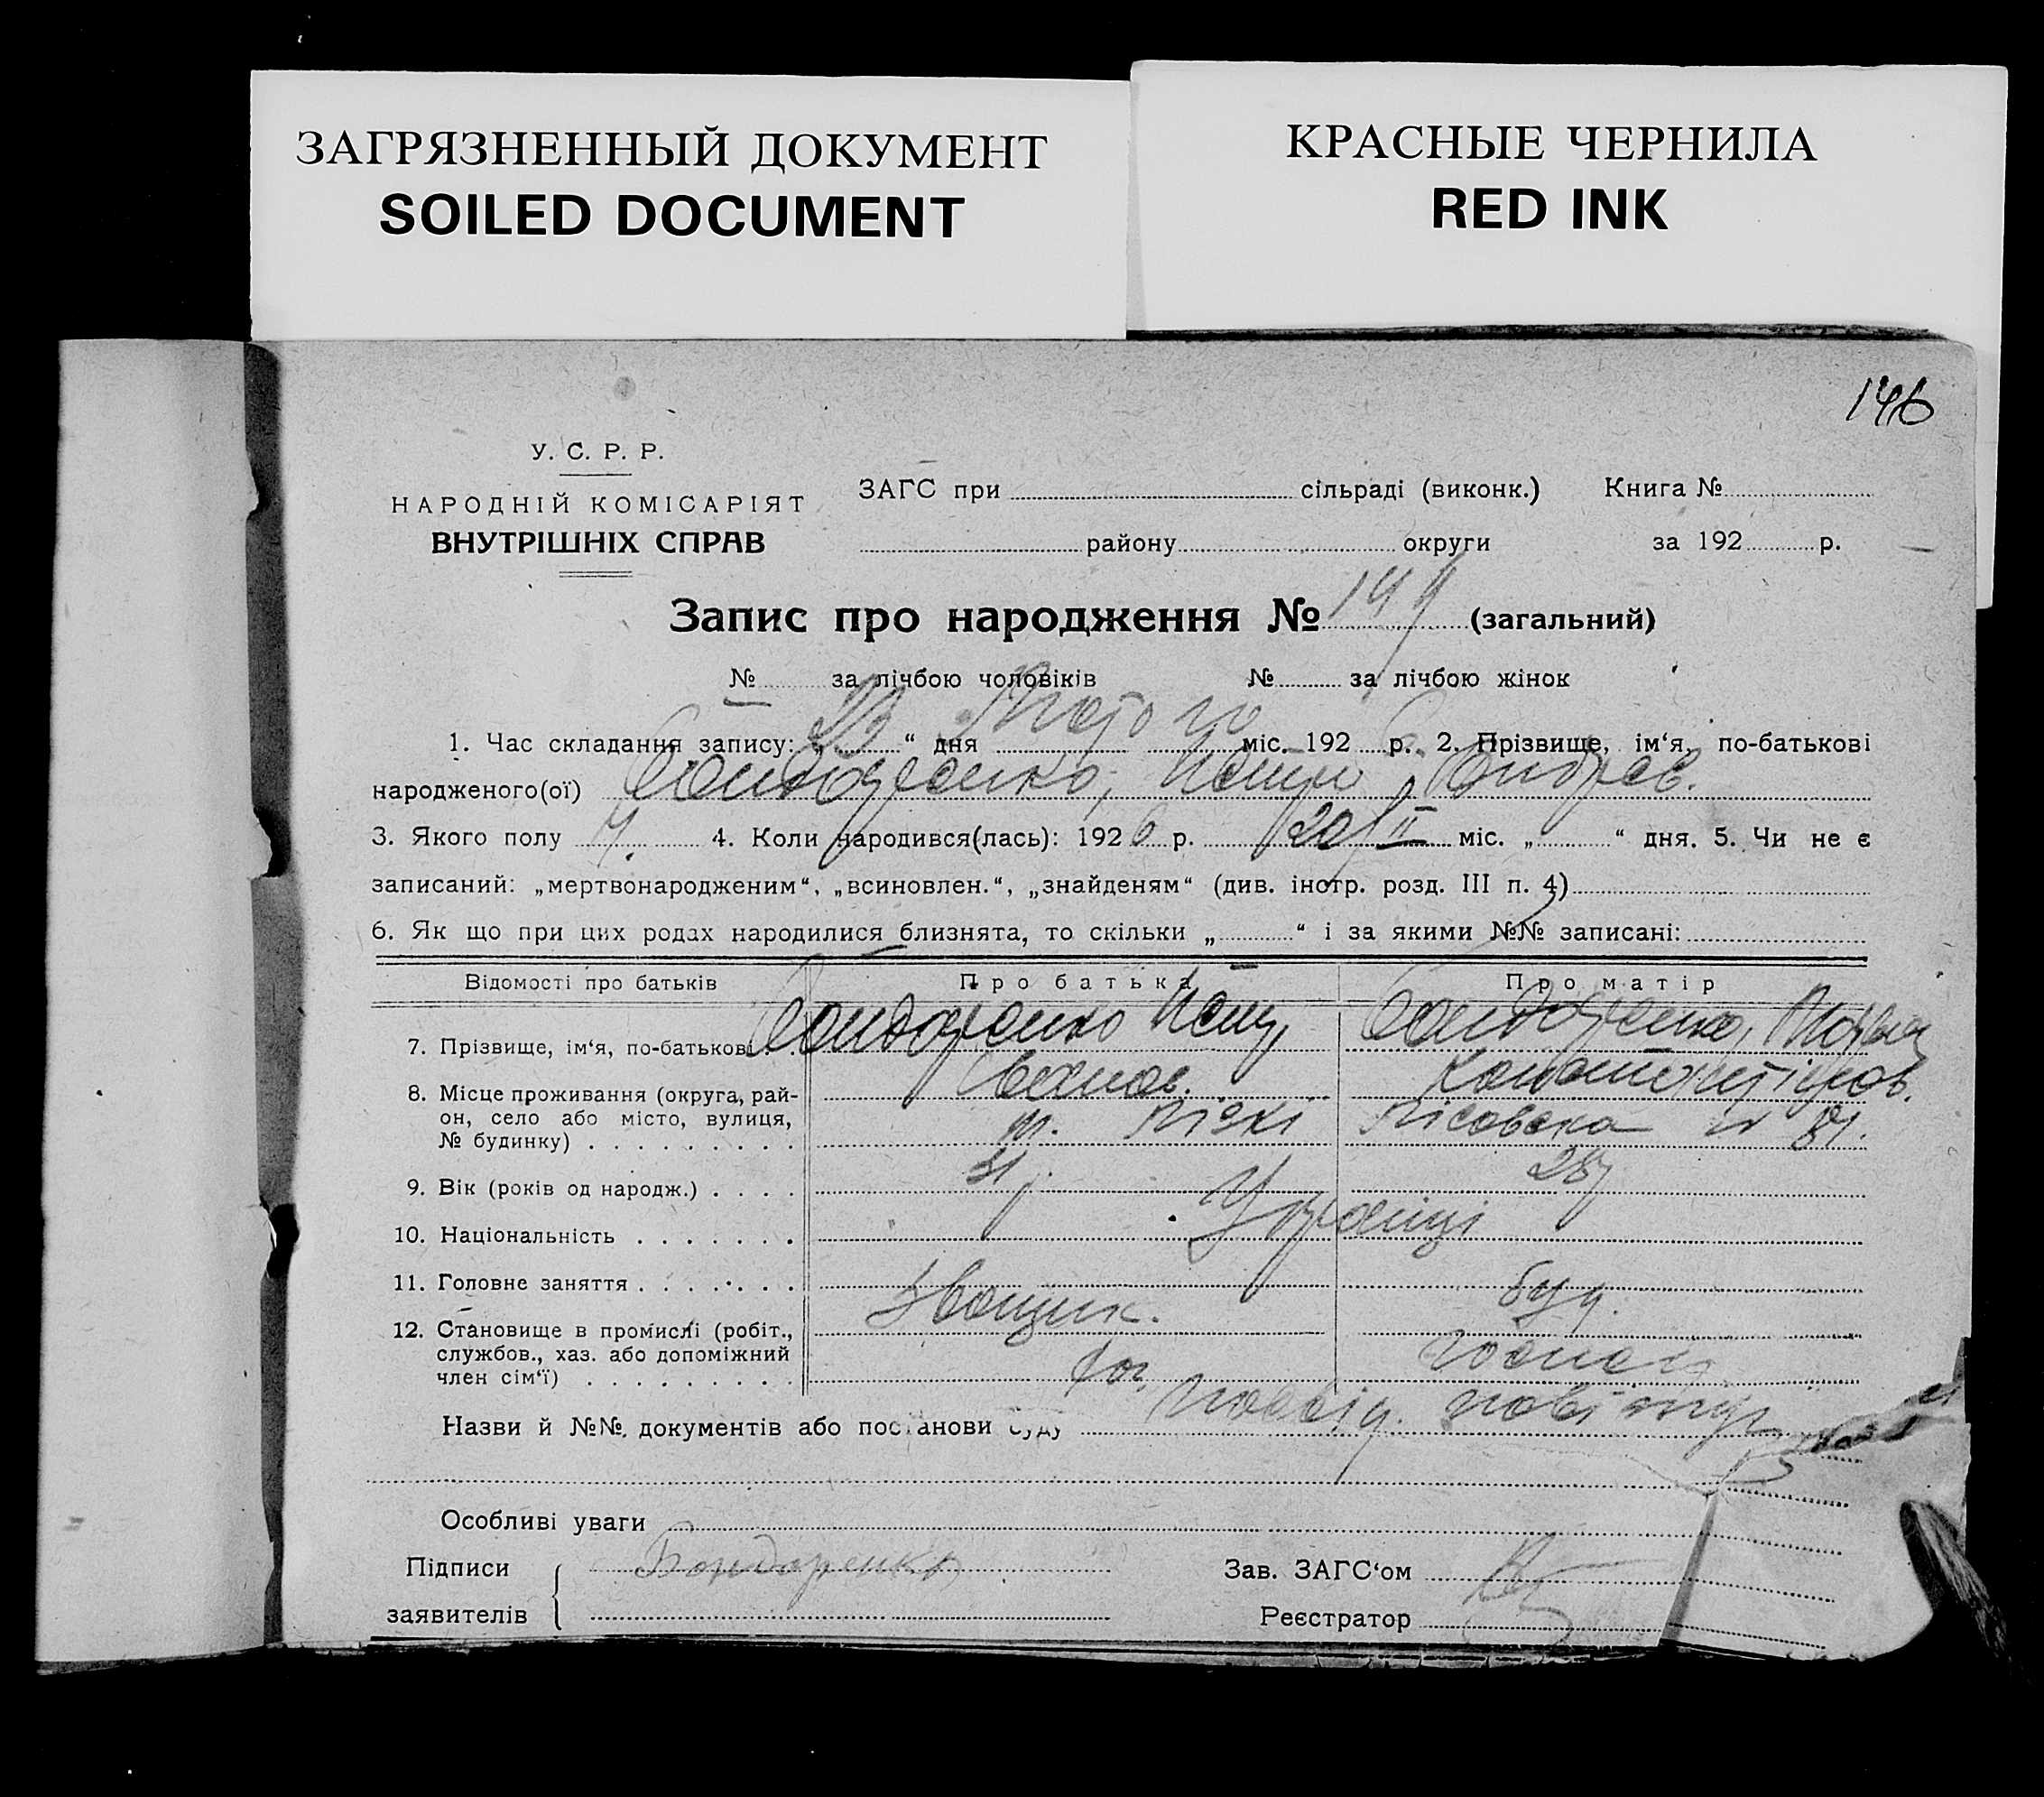 ЗАГРЯЗНЕННЫЙ ДОКУМЕНТ
SOILED DOCUMENT
КРАСНЫЕ ЧЕРНИЛА
RED INK
146
У. С. Р. Р.
НАРОДНІЙ КОМІСАРІЯТ
ВНУТРІШНІХ СПРАВ
ЗАГС при сільраді (виконк.) Книга №
району округи за 192 р.
Запис про народження № 149 (загальний)
№ за лічбою чоловіків № за лічбою жінок
1. Час складання запису: „23“ дня Лютого міс. 192 6 р. 2. Прізвище, ім‘я, по-батькові
народженого(ої) Бондаренко,
3. Якого полу Ч. 4. Коли народився(лась): 1926 р. 20/II міс. „ “ дня. 5. Чи не є
записаний: „мертвонародженим“, „всиновлен.“, „знайденям“ (див. інстр. розд. III п. 4)
6. Як що при цих родах народилися близнята, то скільки „ “ і за якими №№ записані:
Відомості про батьків Про батька Про матір
7. Прізвище, ім‘я, по-батькові . . Бондаренко Бондаренко,
8. Місце проживання (округа, рай-
он, село або місто, вулиця,
№ будинку) . . . . . . . . . Піскі 81.
9. Вік (років од народж.) . . . . 31 р. 28 р
10. Національність . . . . . . . Українці
11. Головне заняття . . . . . . .
12. Становище в промислі (робіт.,
службов., хаз. або допоміжний
член сім‘ї) . . . . . . . . .
Назви й №№ документів або постанови суду Посвід.
Особливі уваги
Підписи Бондаренко Зав. ЗАГС‘ом
заявителів Реєстратор